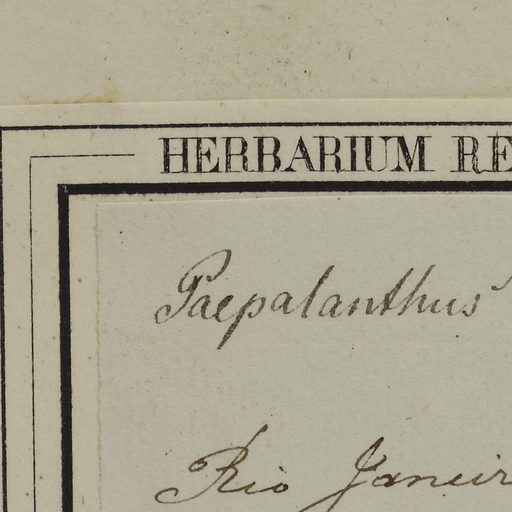 HERBARIUM RE
Paepalanthus
Rio Janeir